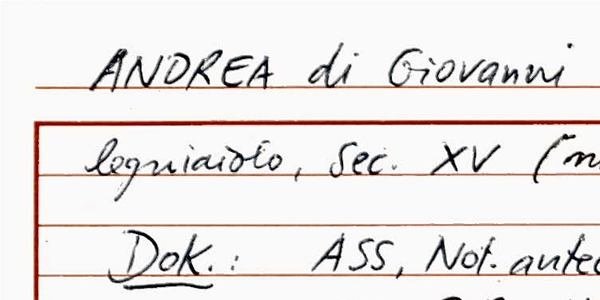 ANDREA di Giovanni
legniaiolo, Sec. XV (m
Dok.: ASS, Not. antec